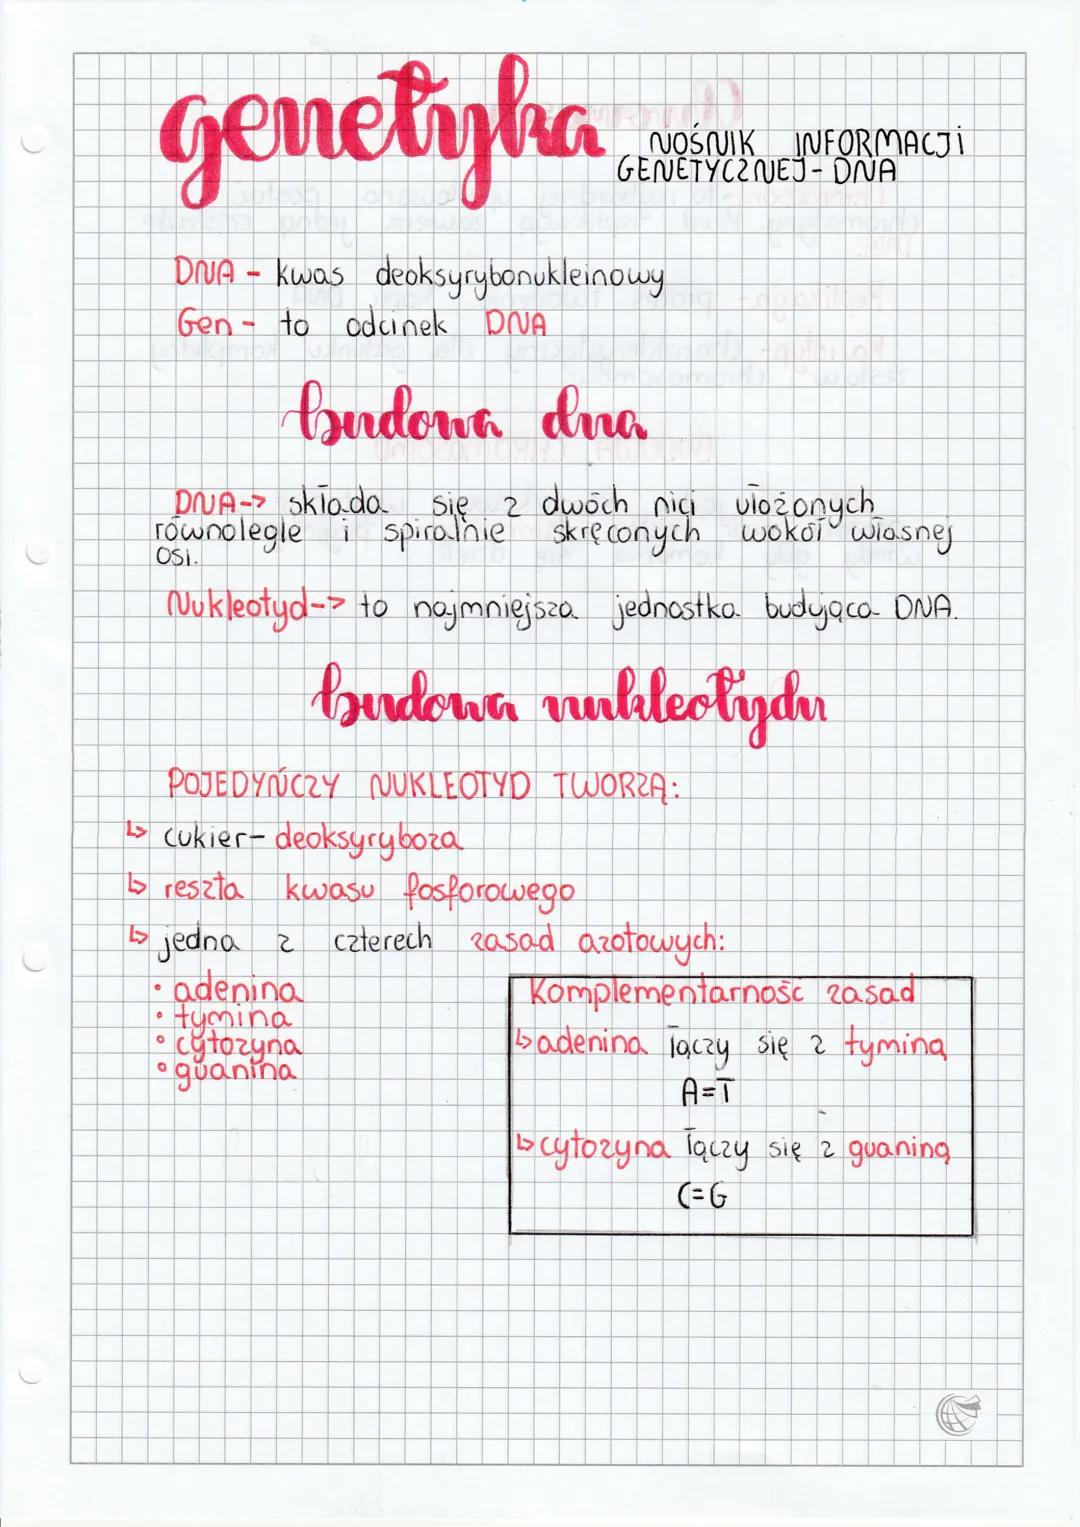 genetyka
NOŚNIK INFORMACJI
GENETYCZNEJ - DNA
DNA - kwas deoksyrybonukleinowy
Gen - to odcinek DNA
budowa dna
DNA -> składa się z dwóch nici ułożonych
równolegle i spiralnie skręconych wokół własnej
osi.
Nukleotyd -> to najmniejsza jednostka budująca DNA.
budowa nukleotydu
POJEDYŃCZY NUKLEOTYD TWORZĄ:
↳ cukier - deoksyryboza
↳ reszta kwasu fosforowego
↳ jedna z czterech zasad azotowych:
• adenina
• tymina
• cytozyna
• guanina
Komplementarność zasad
↳ adenina łączy się z tyminą
A=T
↳ cytozyna łączy się z guaniną
C=G